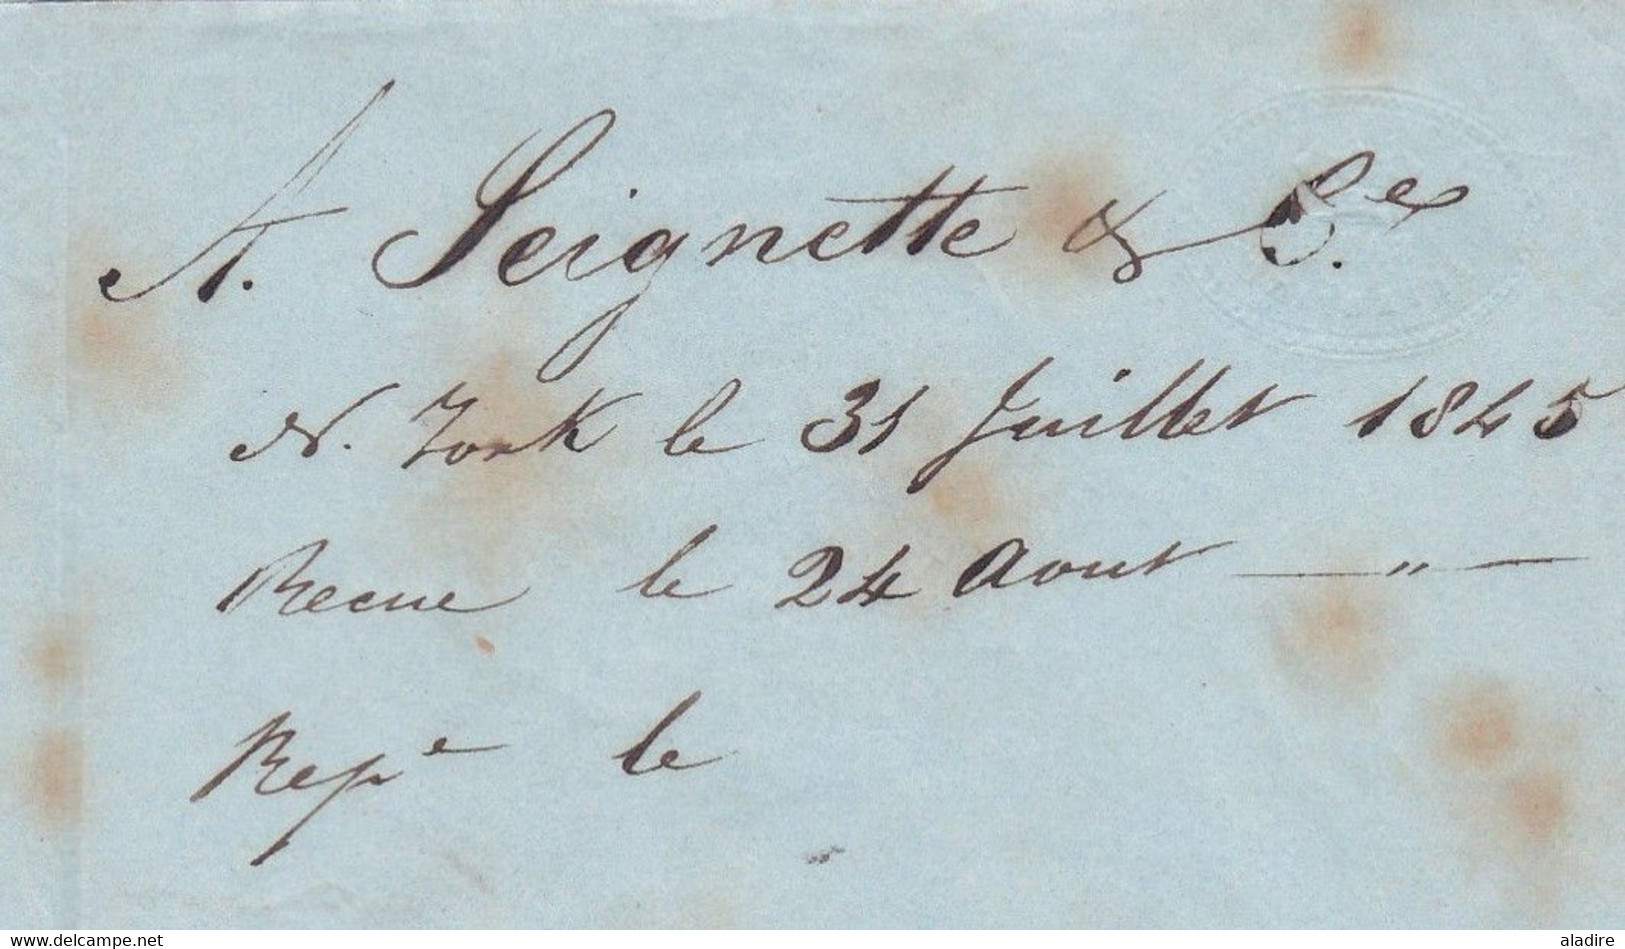 A. Seignette & C.ie
N. York le 31 Juillet 1845
Recue le 24 Aout — " —
Rep.e le
www.delcampe.net
aladire